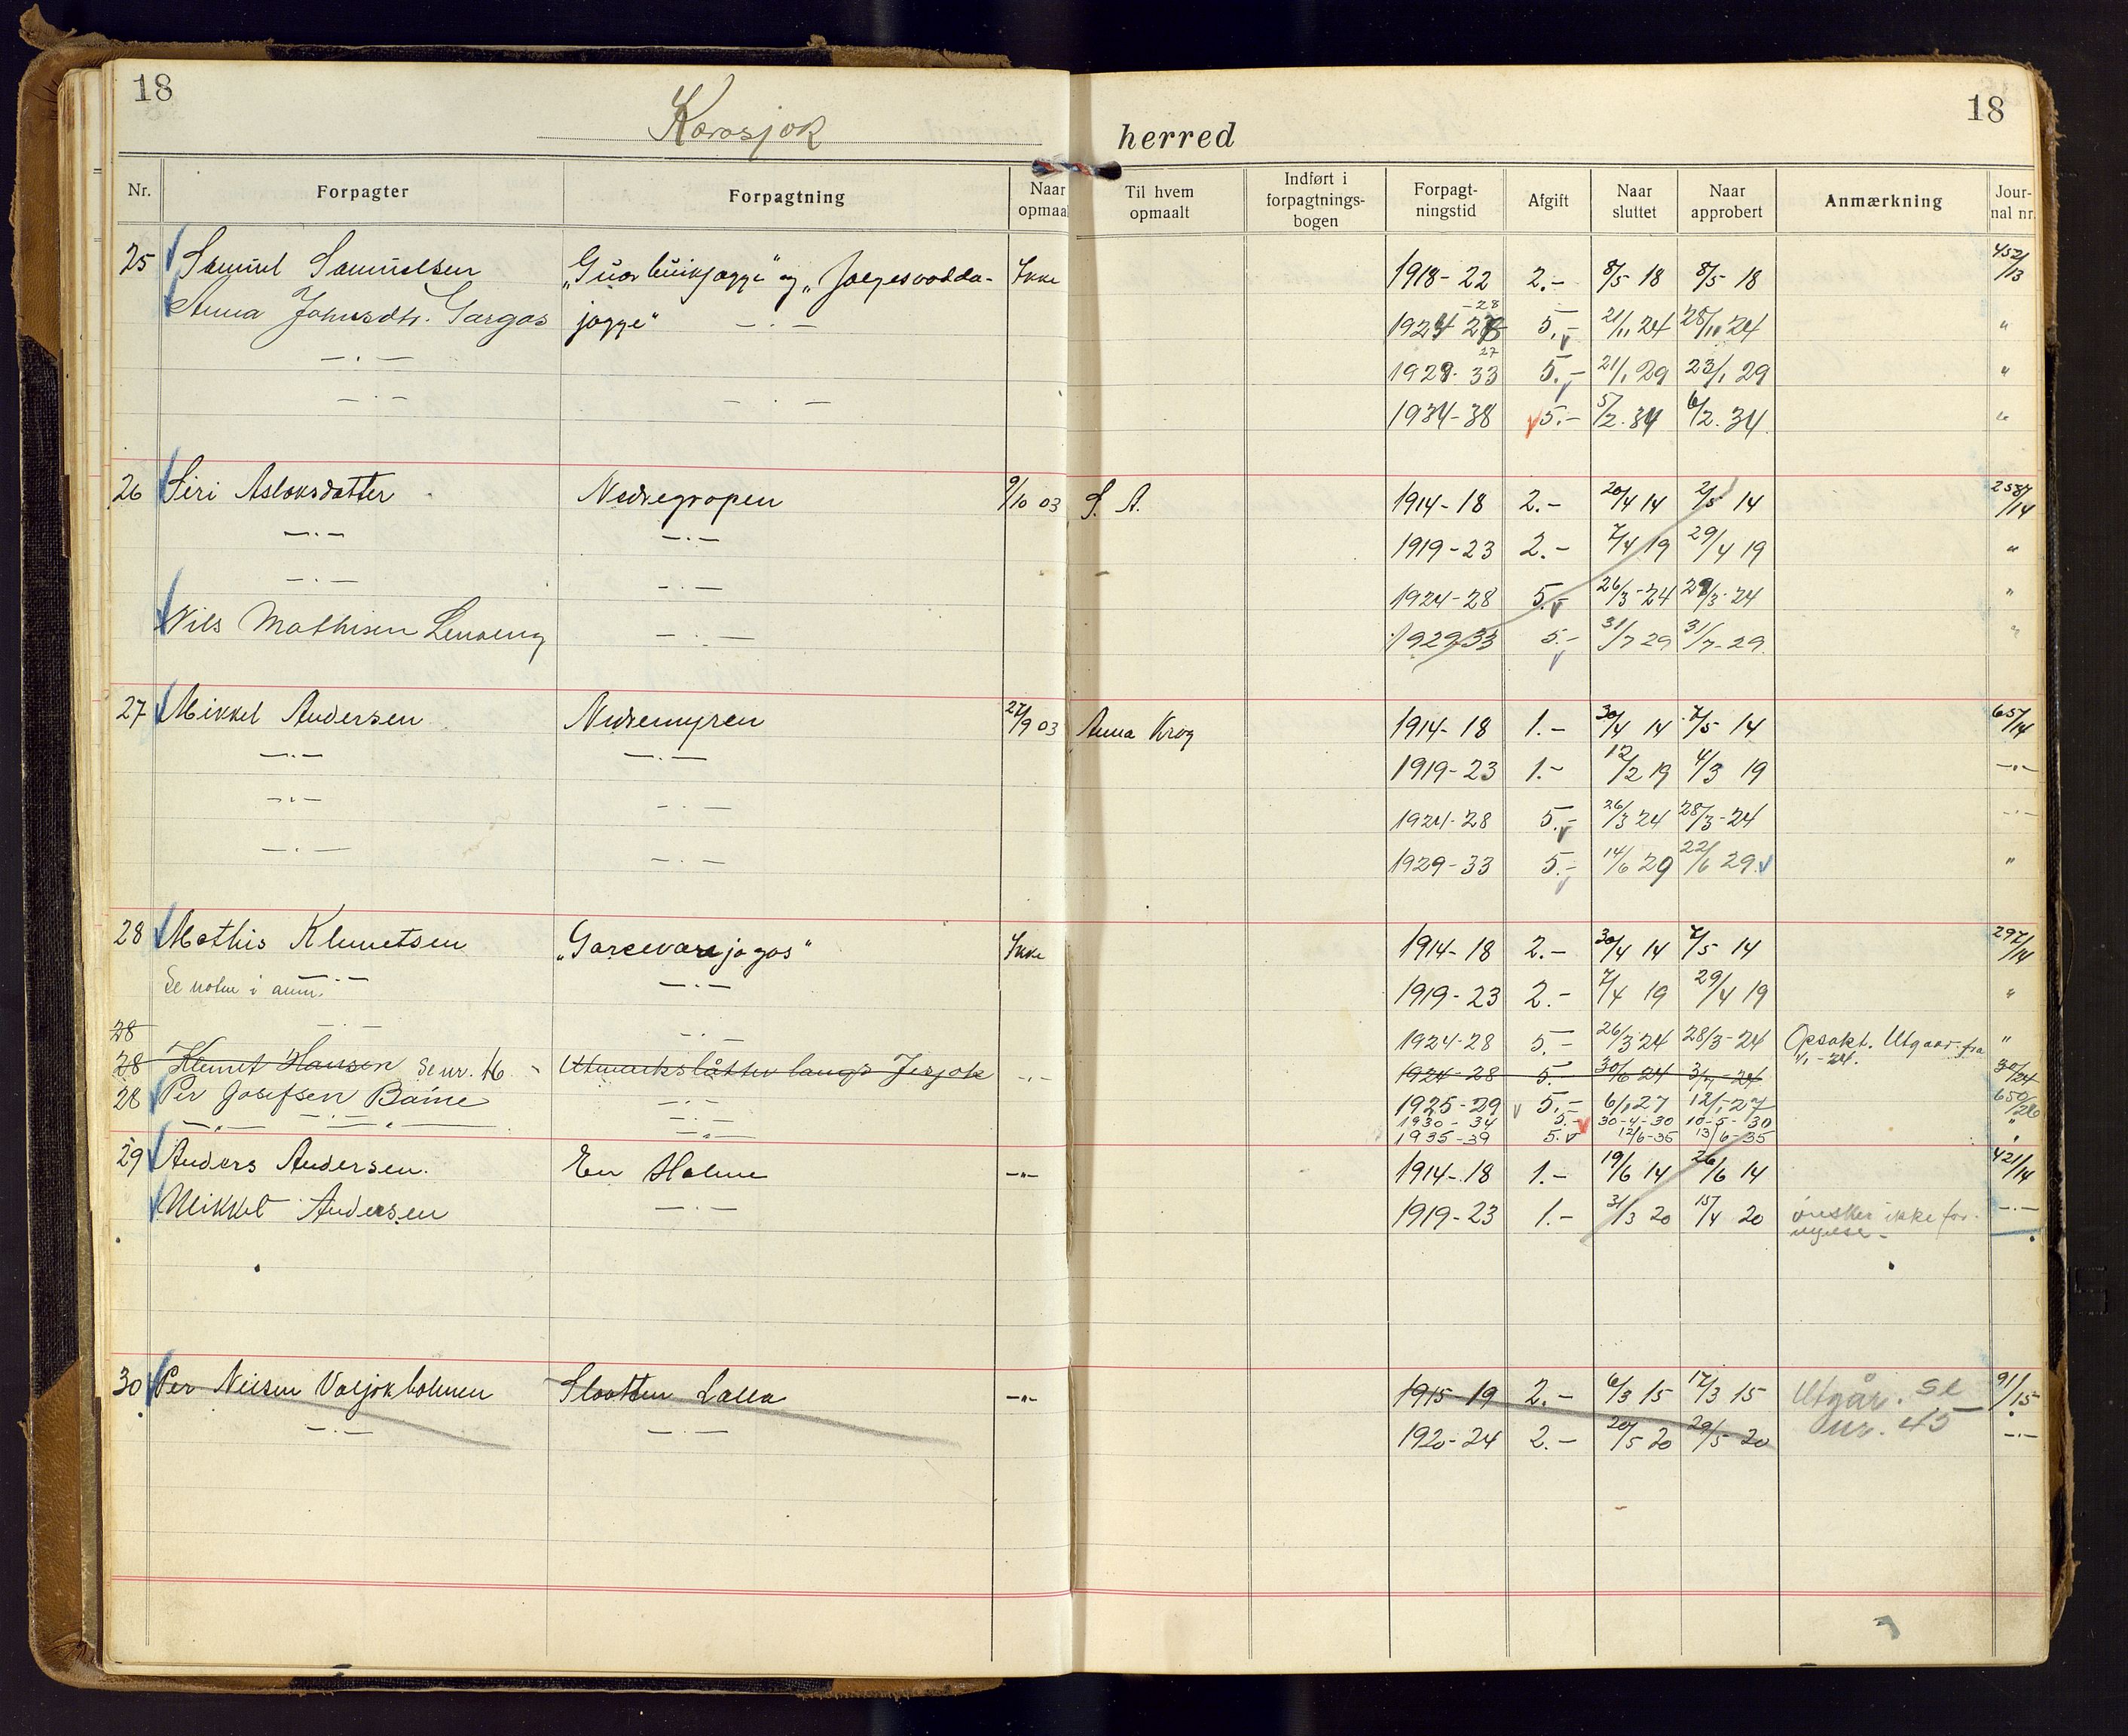 18
18
Karasjok herred
Nr. Forpagter Forpagtning Naar opmaa Til hvem opmaalt Indført i forpagtnings-bogen Forpagt-ningstid Afgift Naar sluttet Naar approbert Anmærkning Jour-nal nr.
25 Samuel Samuelsen og Ikke 1918-22 2.- 8/5 18 8/5 18 452/13
Anna Johnsdtr. Gargas jogge" -.- 5.- 21/11 24 28/11 24 "
-.- 33 5.- 21/1 29 23/1 29 "
-.- -.- 1934-38 5.- 5/2.34 6/2.34 "
26 Siri Aslaksdatter Nedregropen 9/10 03 S. A. 1914-18 2.- 20/4 14 2/5 14 258/14
-.- -.- 1919-23 2.- 7/4 19 29/4 19 "
-.- -.- 1924-28 5.- 26/3-24 29/3-24 "
Nils Mathisen -.- 1929-33 5.- 31/7 29 31/7-29 "
27 Mikkel Andersen Nedremyren 27/9 03 Anna Krog 1914-18 1.- 30/4 14 7/5 14 657/14
-.- -.- 1919-23 1.- 12/2 19 4/3 19 -"-
-.- -.- 1924-28 5.- 26/3 24 28/3-24 -.-
-.- -.- 1929-33 5.- 14/6 29 22/6 29 "
28 Mathis Klemetsen "Garcevarejogas" Ikke 1914-18 2.- 30/4 14 7/5 14 297/14
Se i anm. -.- -.- 1919-23 2.- 7/4 19 29/4 19 "
28 -.- -.- 1924-28 5.- 26/3 24 28/3-24 Opsakt. Utgaar fra "
1/1-24.
28 Klemet Hansen Se nr. 46 Utmarkslåtter langs Jesjok -.- 1924-28 5.- 30/6 24 3/7-24 30/24
28 Per Josefsen Baine -.- 1925-29 5.- 6/1 27 12/1-27 650/26
-.- -.- 1930-34 5.- 30-4-30 10-5-30 "
-"- -"- -"- 1935-39 5. 12/6-35 13/6-35 "
29 Anders Andersen. En Holme -"- 1914-18 1.- 19/6 14 26/6 14 421/14
Mikkel Andersen -.- 1919-23 1.- 31/3 20 15/4 20 ønsker ikke for- -.-
nyelse.-
30 Per Nilsen Valjokholmen Slaatten Lalla -"- 1915-19 2.- 6/3 15 17/3 15 Utgår. Se 91/15
-.- -.- 1920-24 2.- 20/5 20 29/5 20 nr. 45 -.-